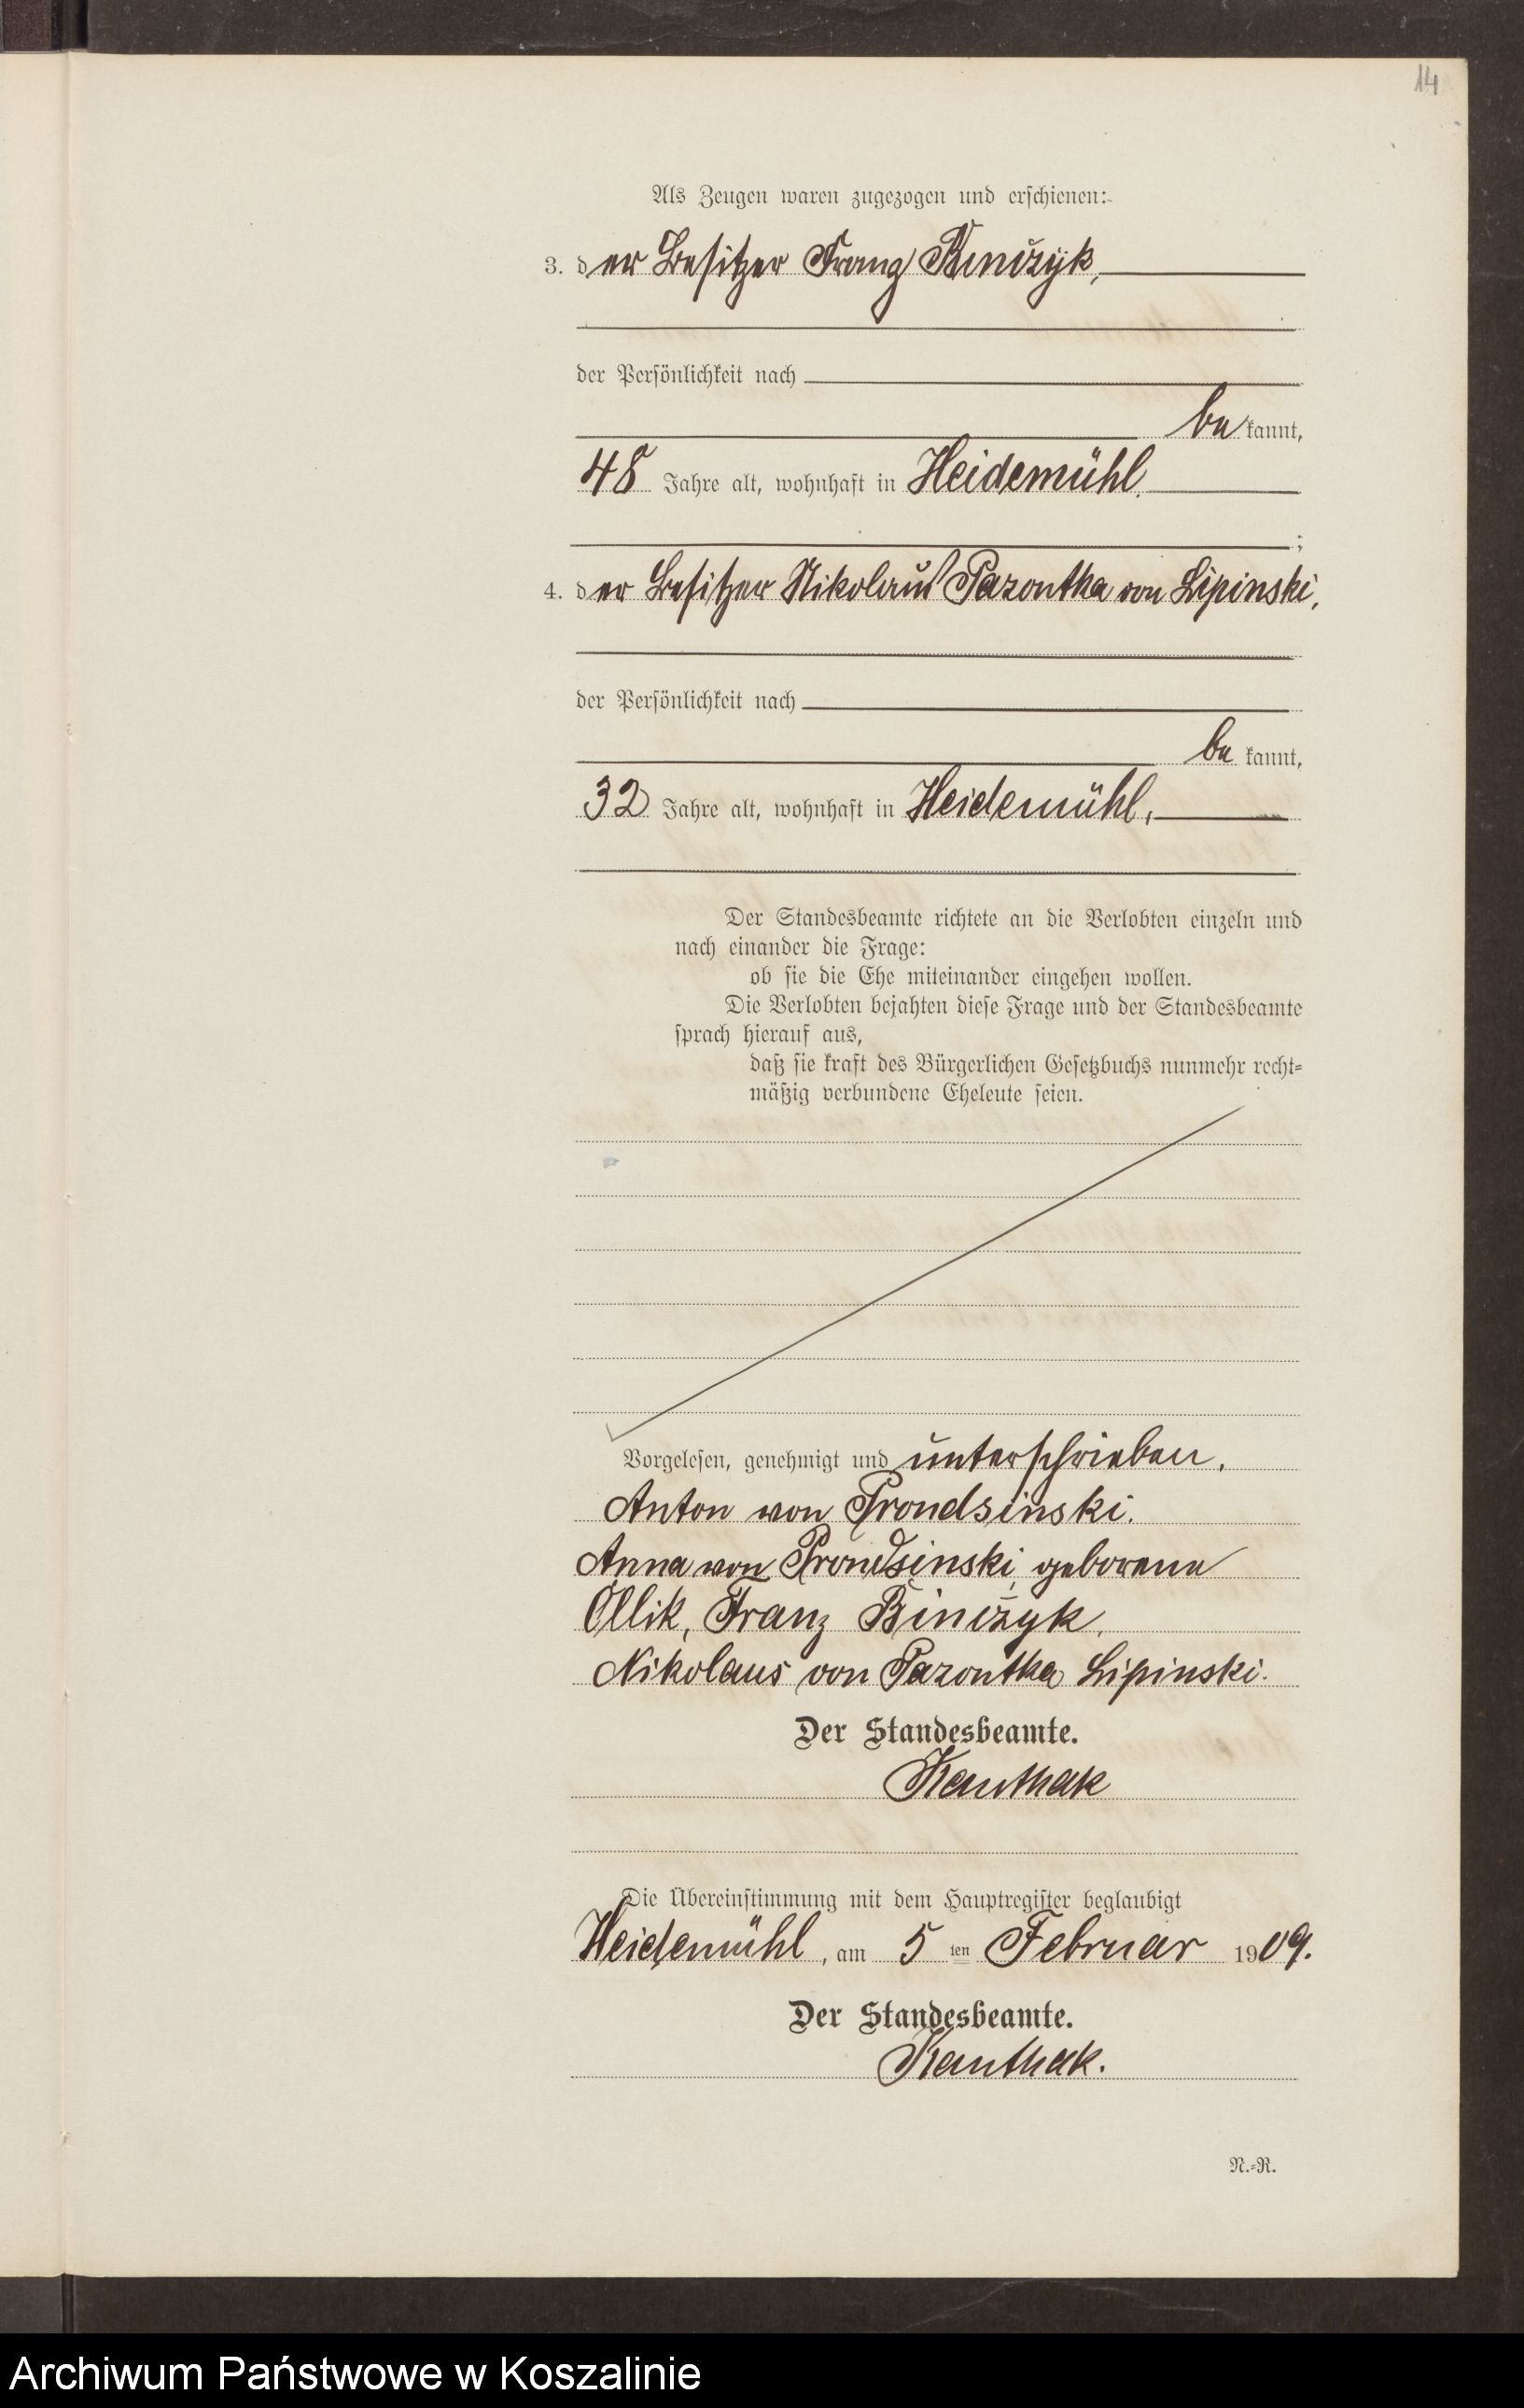 14
Als Zeugen waren zugezogen und erschienen:
3. der Besitzer Franz Binczyk,
der Persönlichkeit nach
be kannt,
48 Jahre alt, wohnhaft in Heidemühl
;
4. der Besitzer Nikolaus Pazontka von Lipinski,
der Persönlichkeit nach
be kannt,
32 Jahre alt, wohnhaft in Heidemühl,
Der Standesbeamte richtete an die Verlobten einzeln und
nach einander die Frage:
ob sie die Ehe miteinander eingehen wollen.
Die Verlobten bejahten diese Frage und der Standesbeamte
sprach hierauf aus,
daß sie kraft des Bürgerlichen Gesetzbuchs nunmehr recht-
mäßig verbundene Eheleute seien.
Vorgelesen, genehmigt und unterschrieben.
Anton von Prondsinski.
Anna von Prondsinski, geborene
Ollik, Franz Binczyk.
Nikolaus von Pazontka Lipinski.
Der Standesbeamte.
Kauthak
Die Übereinstimmung mit dem Hauptregister beglaubigt
Heidemühl, am 5 ten Februar 1909.
Der Standesbeamte.
Kauthak.
N.-R.
Archiwum Państwowe w Koszalinie